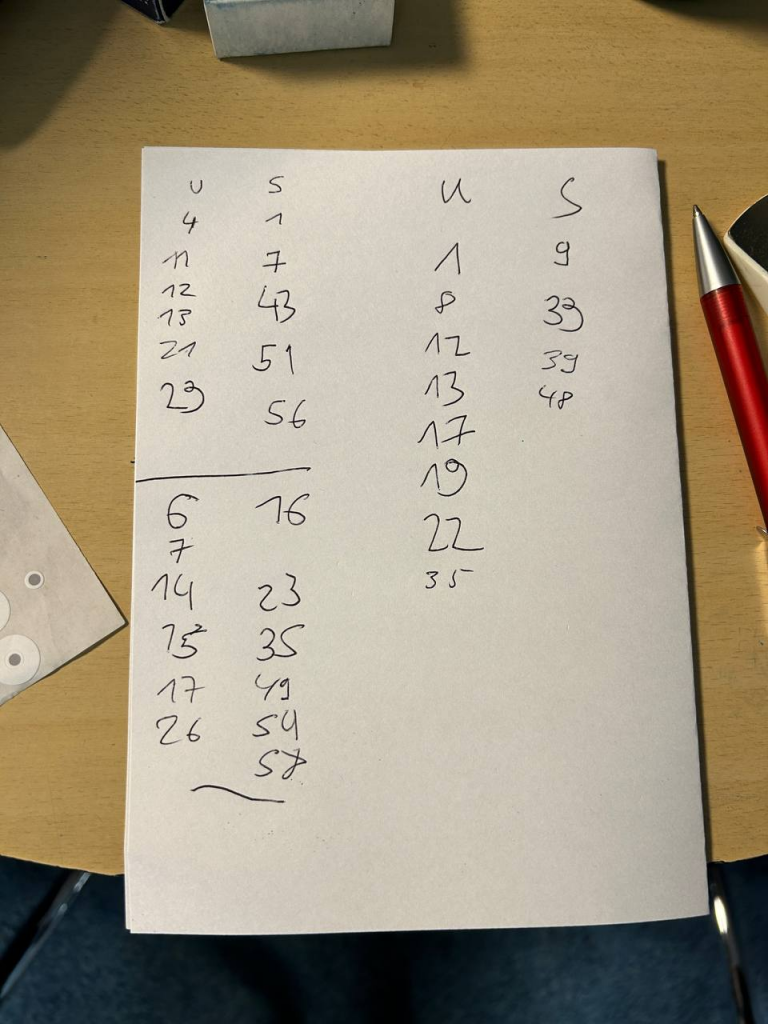 U S
4 1
11 7
12 43
13
21 51
23 56
6 16
7
14 23
15 35
17 49
26 54
58
U S
1 9
8 33
12 39
13 48
17
19
22
35